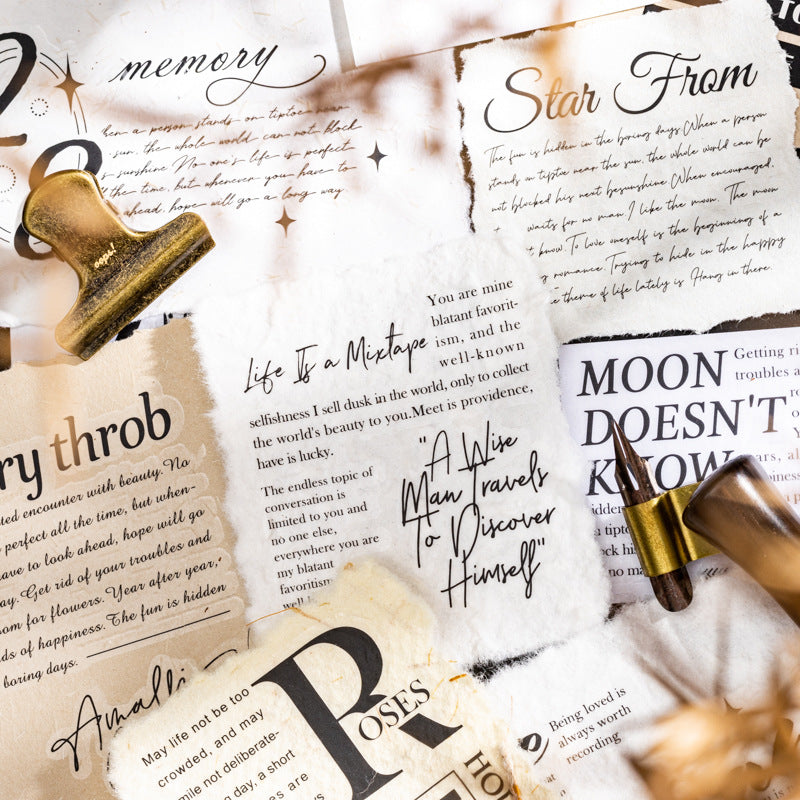 memory
hen a person stands on tiptoe near
sun, the whole world can not block
s sunshine No one's life is perfect
the time, but whenever you have to
ahead, hope will go a long way
Star From
The fun is hidden in the boring days When a person
stands on tiptoe near the sun, the whole world can be
not blocked his next besunshine When encouraged,
waits for no man. I like the moon. The moon
t know. To love oneself is the beginning of a
romance. Trying to hide in the happy
theme of life lately is Hang in there.
Life Is a Mixtape
You are mine
blatant favorit-
ism, and the
well-known
selfishness I sell dusk in the world, only to collect
the world's beauty to you.Meet is providence,
have is lucky.
The endless topic of
conversation is
limited to you and
no one else,
everywhere you are
my blatant
favoritism
"A Wise
Man Travels
To Discover
Himself"
MOON
DOESN'T
KNOW
Getting ri
troubles a
ears, al
hidden
no ma
ry throb
ted encounter with beauty. No
perfect all the time, but when-
ave to look ahead, hope will go
ay. Get rid of your troubles and
om for flowers. Year after year,
ds of happiness. The fun is hidden
boring days.
Amalli
May life not be too
crowded, and may
mile not deliberate-
ng day, a short
es are
ROSES
HO
Being loved is
always worth
recording